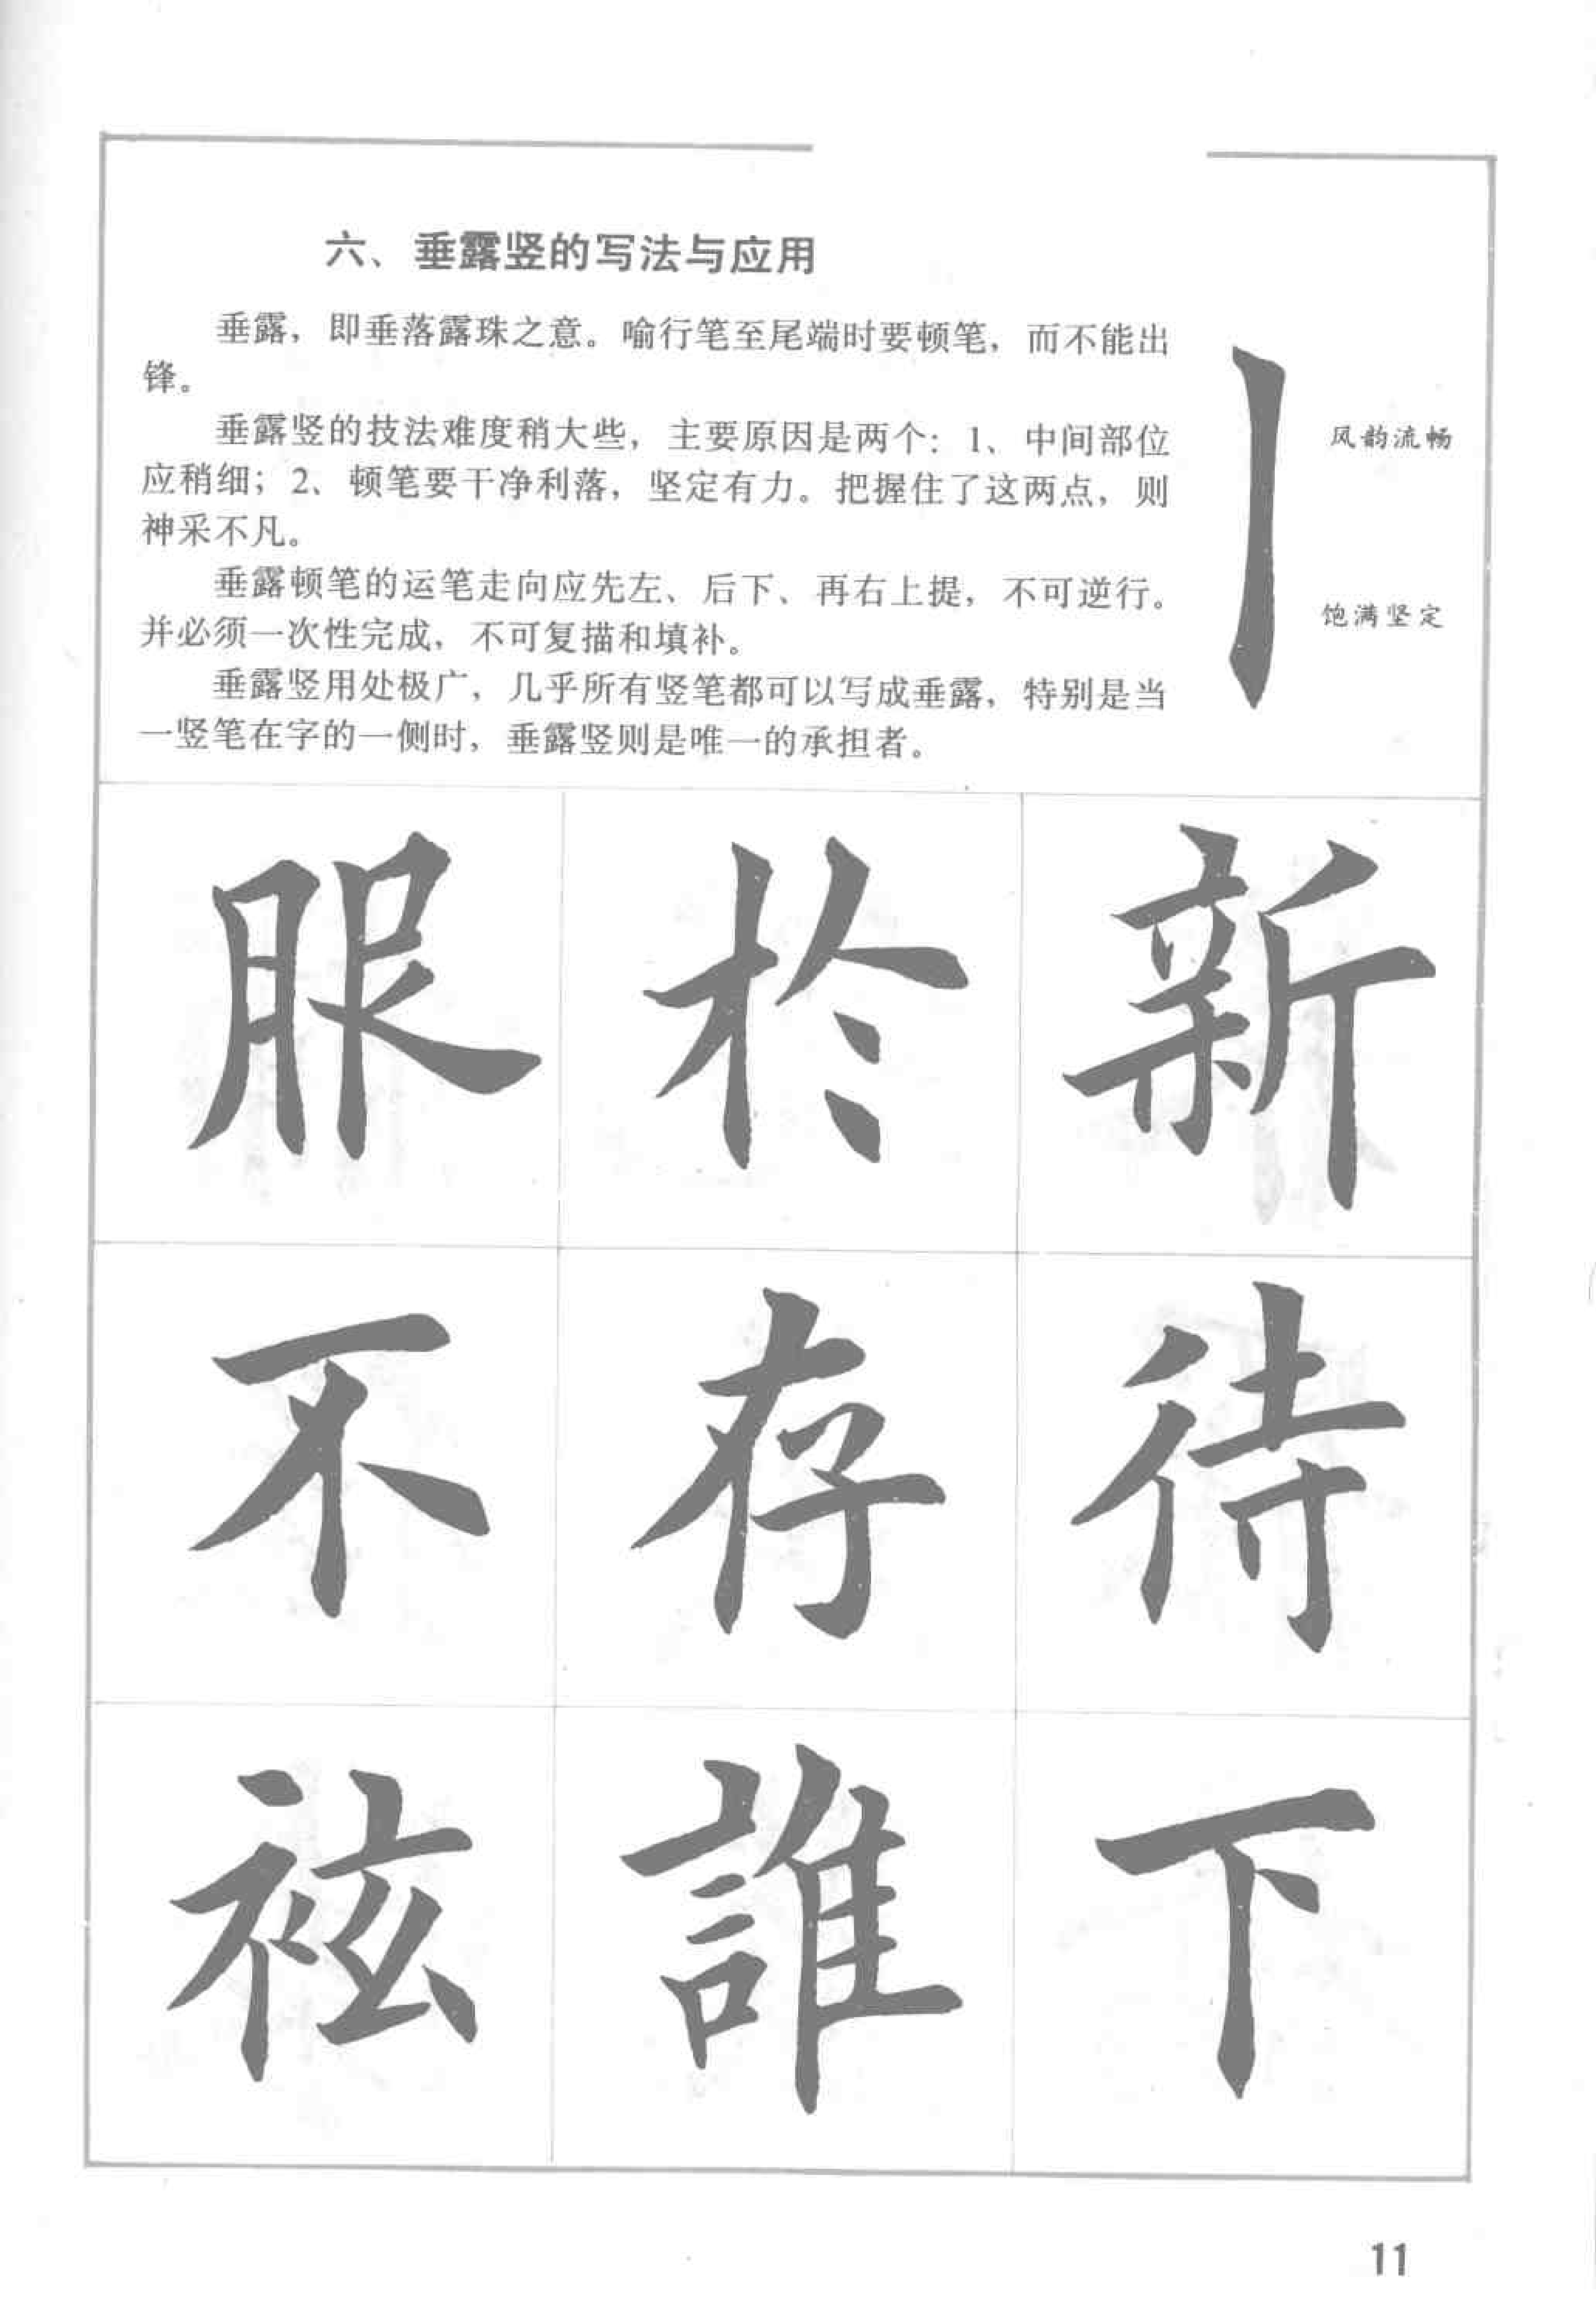 六、垂露竖的写法与应用
垂露，即垂落露珠之意。喻行笔至尾端时要顿笔，而不能出
锋。
垂露竖的技法难度稍大些，主要原因是两个：1、中间部位
应稍细；2、顿笔要干净利落，坚定有力。把握住了这两点，则
神采不凡。
垂露顿笔的运笔走向应先左、后下、再右上提，不可逆行。
并必须一次性完成，不可复描和填补。
垂露竖用处极广，几乎所有竖笔都可以写成垂露，特别是当
一竖笔在字的一侧时，垂露竖则是唯一的承担者。
风韵流畅
饱满坚定
服於新
不存待
袨誰下
11